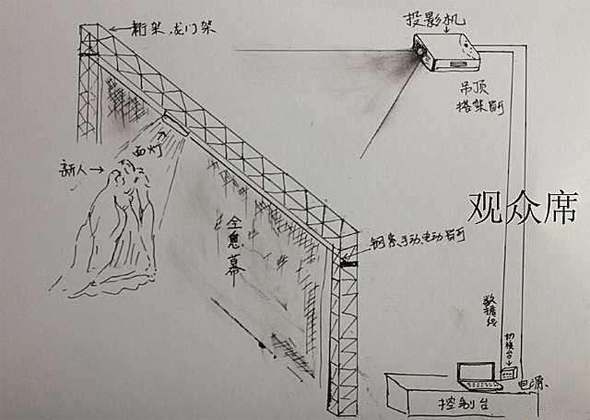 桁架、龙门架
投影机
吊顶
搭架皆可
面灯
新人
观众席
全息幕
钢索、手动、电动皆可
数据线
切换台
电源
控制台